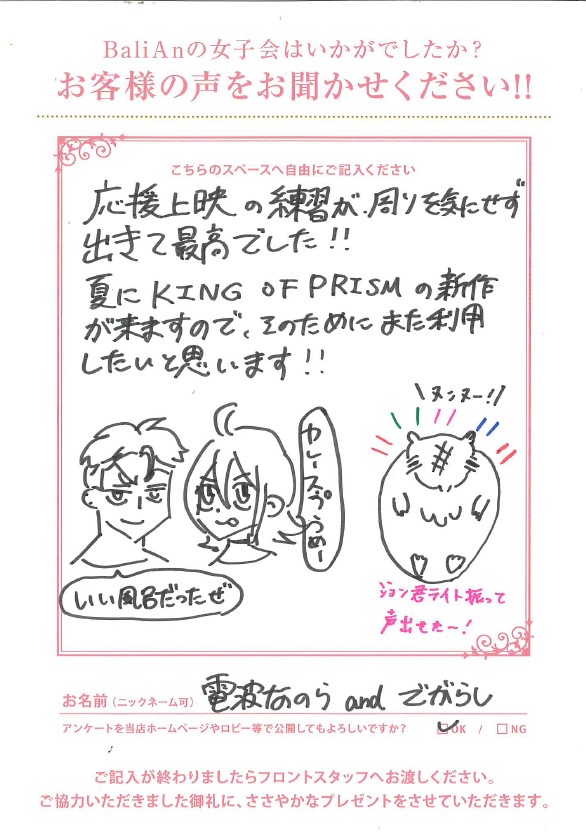 BaliAnの女子会はいかがでしたか?
お客様の声をお聞かせください!!
こちらのスペースへ自由にご記入ください
応援上映の練習が、周りを気にせず
出きて最高でした!!
夏にKING OF PRISMの新作
が来ますので、そのためにまた利用
したいと思います!!
\ヌンヌー!!/
カレースープうめー
いい風呂だったぜ
ジョン君ライト振って
声出せた〜!
お名前(ニックネーム可) 電波なのら and でがらし
アンケートを当店ホームページやロビー等で公開してもよろしいですか? ☑OK / □NG
ご記入が終わりましたらフロントスタッフへお渡しください。
ご協力いただきました御礼に、ささやかなプレゼントをさせていただきます。